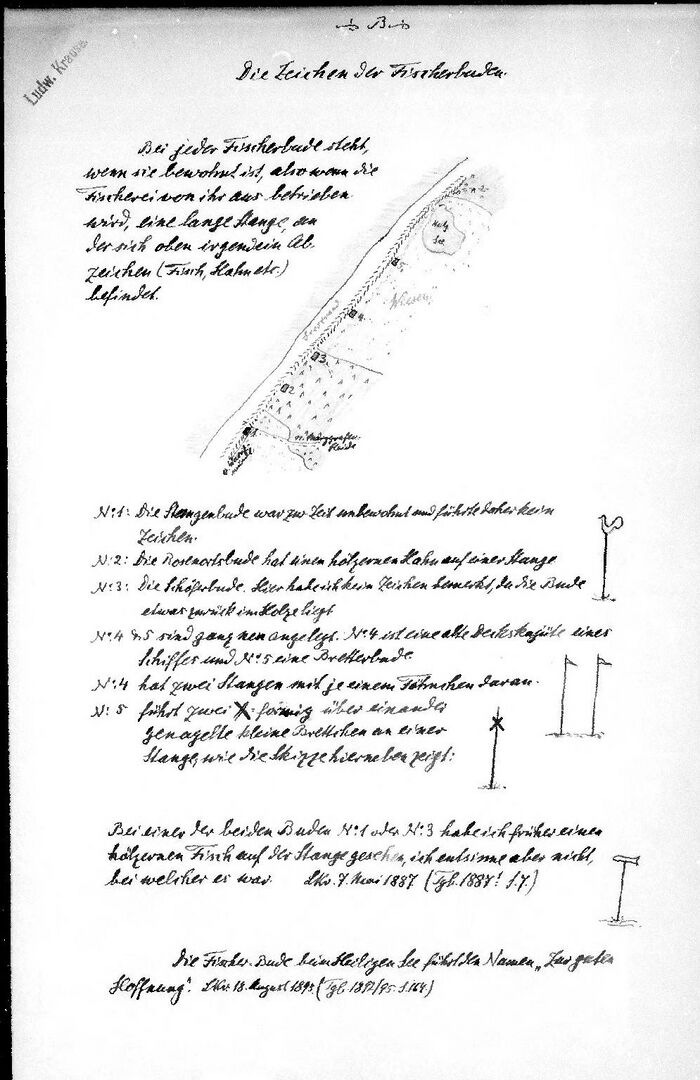 B
Ludw. Krause.
Die Zeichen der Fischerbuden.
Bei jeder Fischerbude steht,
wenn sie bewohnt ist, also wenn die
Fischerei von ihr aus betrieben
wird, eine lange Stange, an
der sich oben irgendein Ab-
zeichen (Fisch, Hahn etc.)
befindet.
See
5.
Wiesen
4.
Seestrand
3.
2
1
n. Markgrafen-
Heide
No 1: Die Stangenbude war zur Zeit unbewohnt und führte daher kein
Zeichen.
No 2: Die Rosenortsbude hat einen hölzernen Hahn auf einer Stange
No 3: Die Schäferbude. Hier habe ich kein Zeichen bemerkt, da die Bude
etwas zurück im Holze liegt
No 4 & 5 sind ganz neu angelegt. No 4 ist eine alte Deckskajüte eines
Schiffes und No 5 eine Bretterbude.
No 4 hat zwei Stangen mit je einem Fähnchen daran.
No 5 führt zwei X-förmig über einander
genagelte kleine Brettchen an einer
Stange, wie die Skizze hierneben zeigt:
Bei einer der beiden Buden No 1 oder No 3 habe ich früher einen
hölzernen Fisch auf der Stange gesehen, ich entsinne aber nicht,
bei welcher es war. LKr. 7. Mai 1887. (Tgb. 1887! S. 7.)
Die Fischer-Bude beim Heiligen See führt den Namen „Zur guten
Hoffnung". LKr. 18. August 1893. (Tgb. S. 164.)